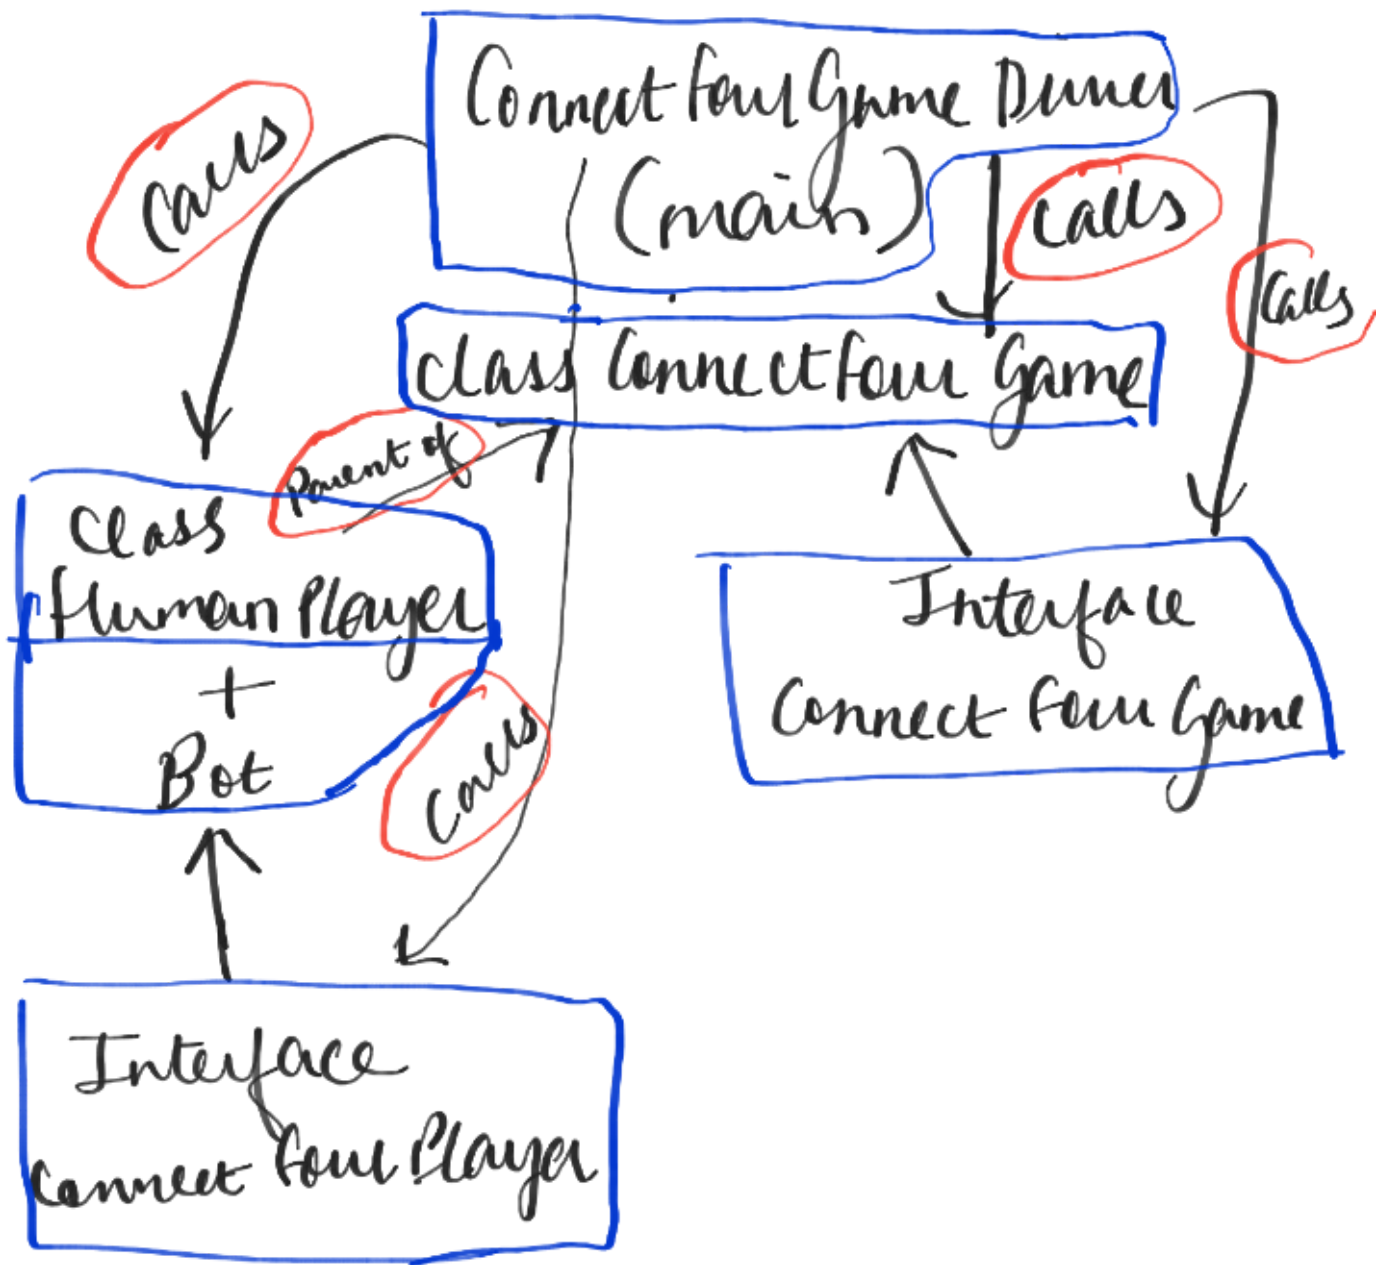 Connect Four Game Driver
(main)
Calls
Calls
Calls
class Connect Four Game
Parent of
Class
Human Player
+
Bot
Calls
Interface
Connect Four Game
Interface
Connect Four Player